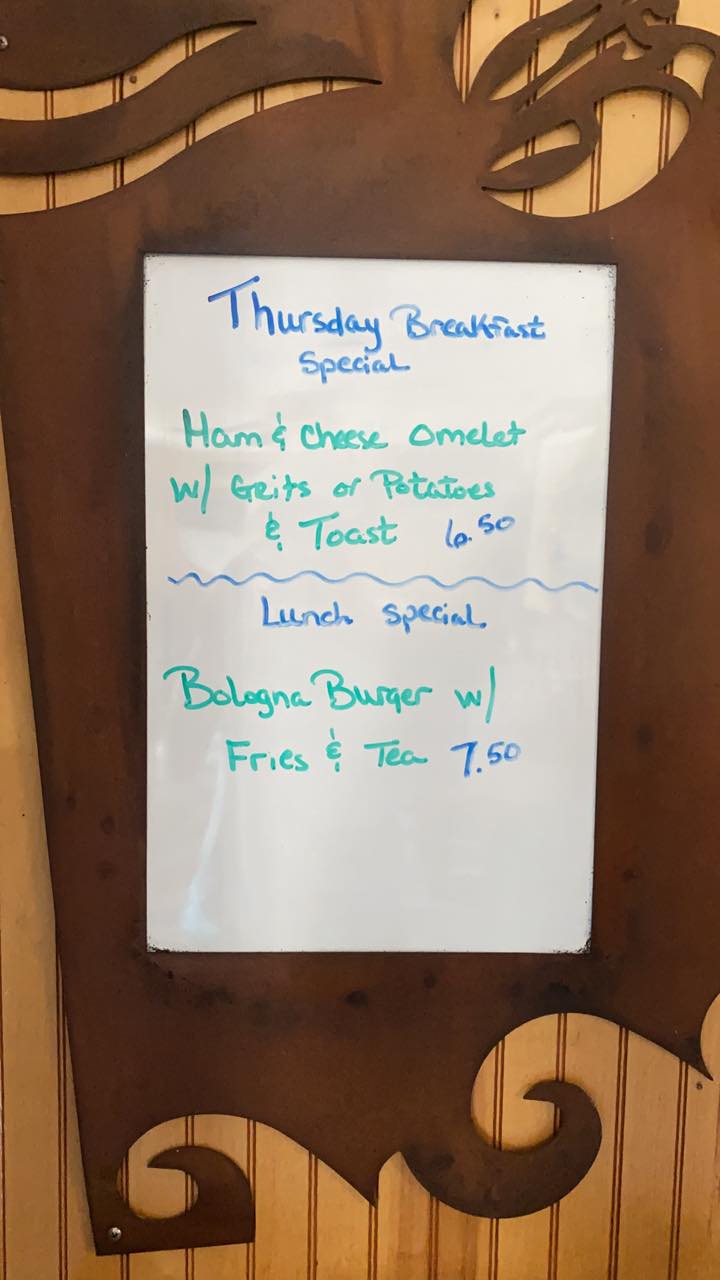 Thursday Breakfast
Special
Ham & Cheese Omelet
w/ Grits or Potatoes
& Toast 6.50
Lunch Special
Bologna Burger w/
Fries & Tea 7.50